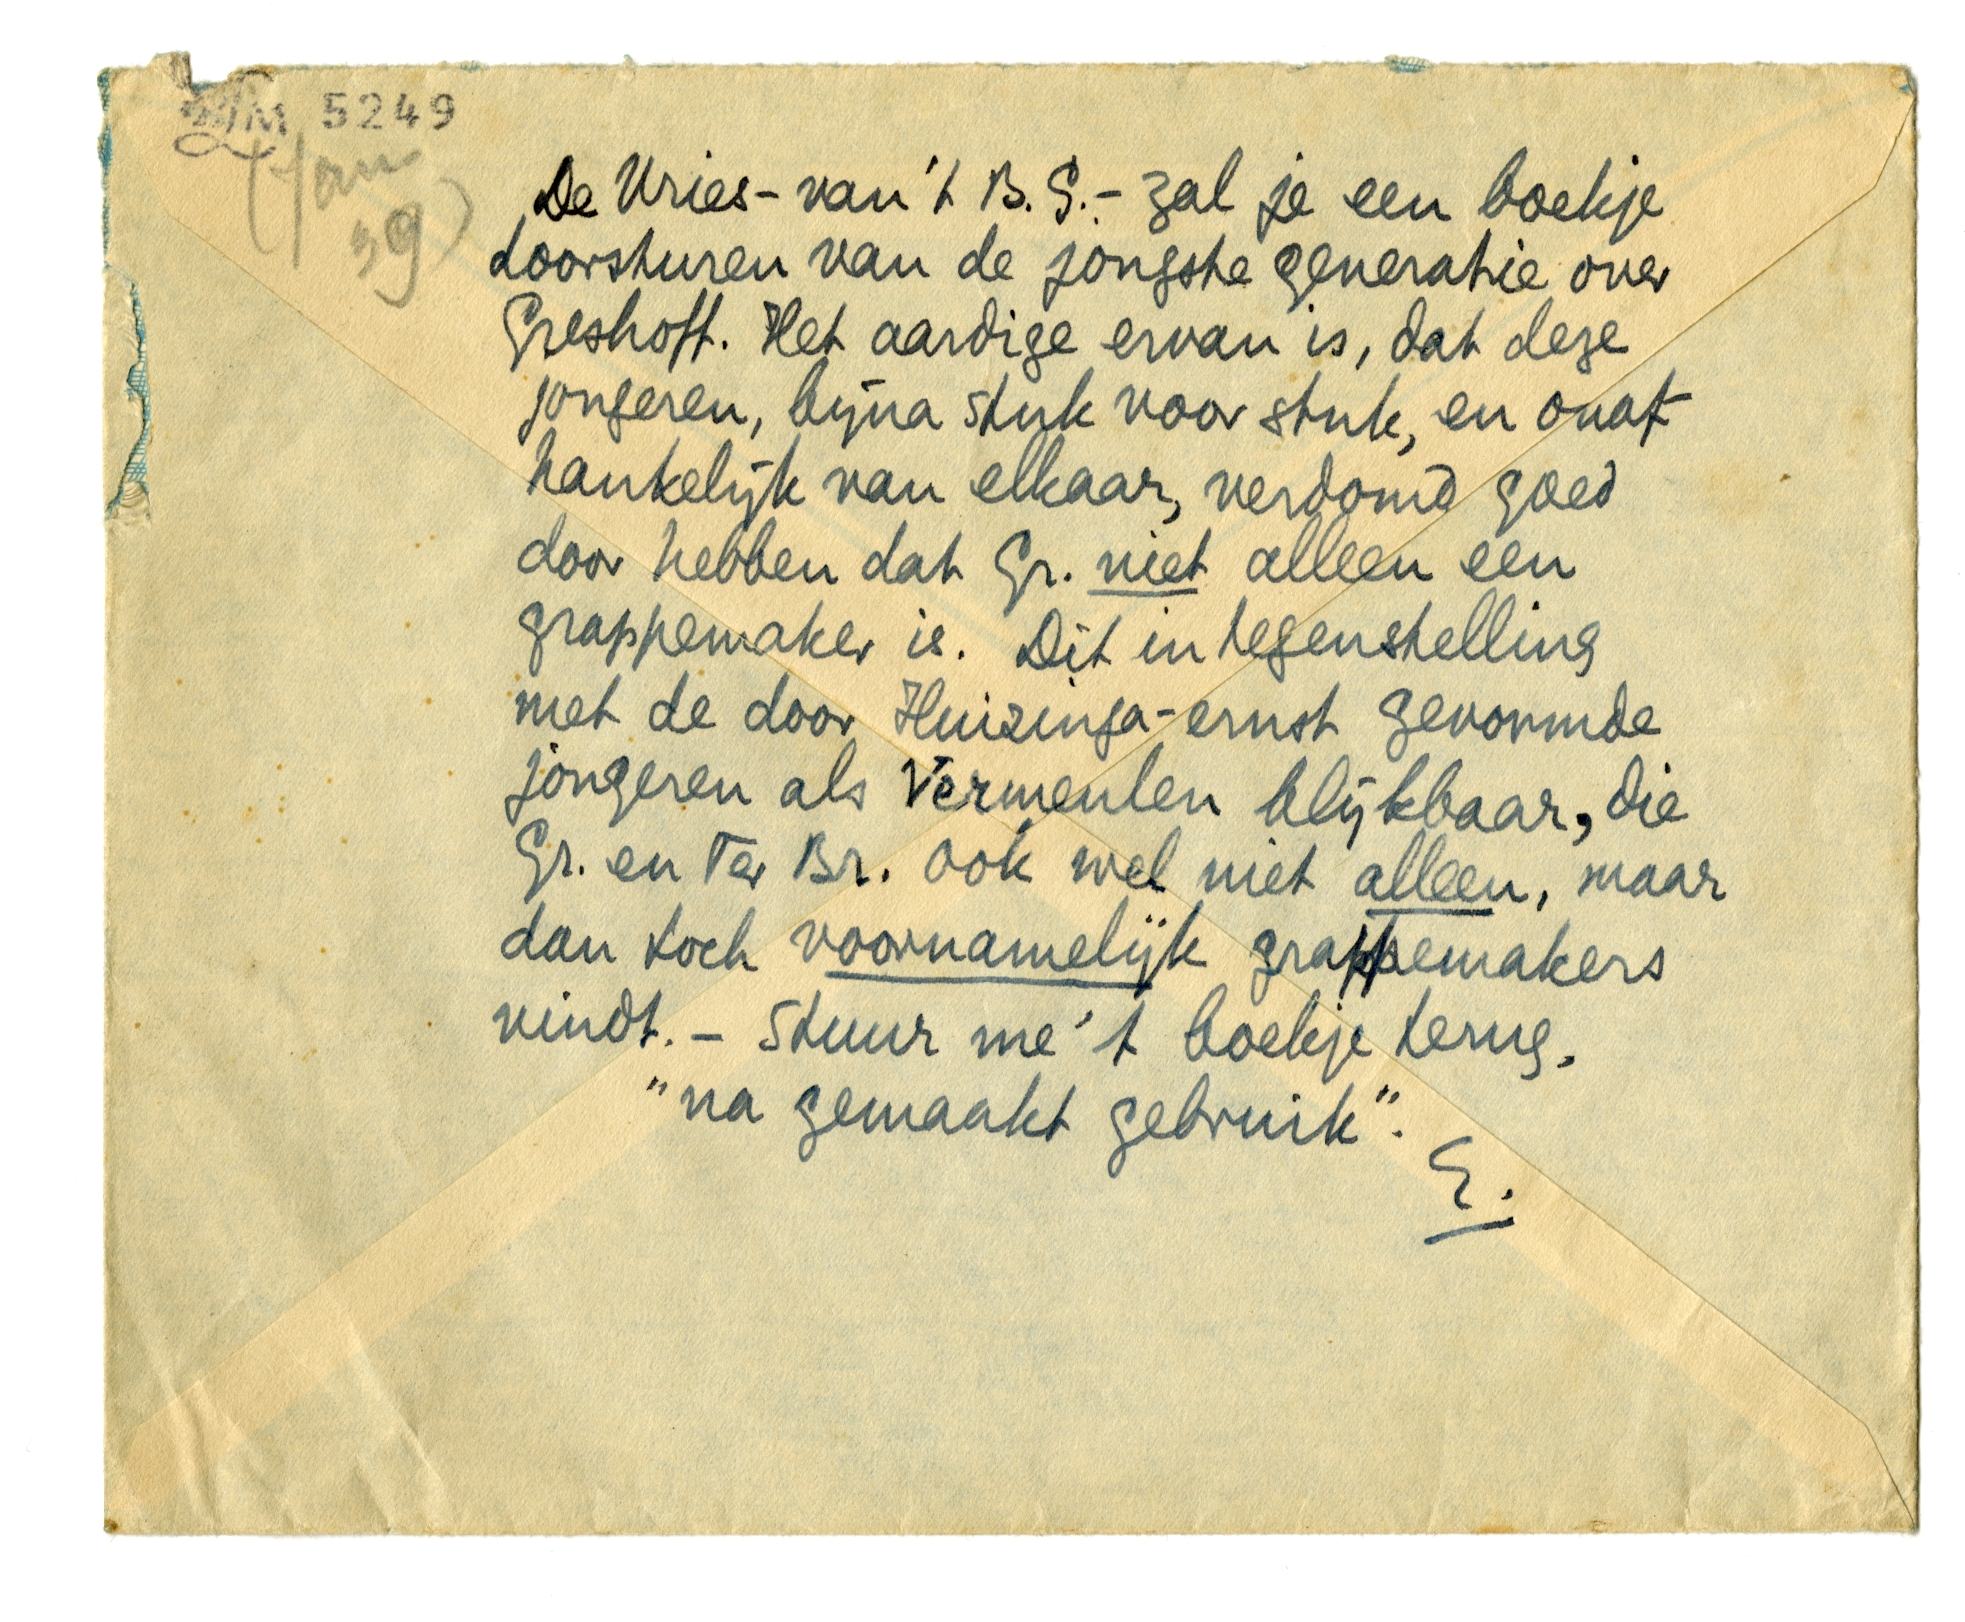 5249
(Jan
39)
De Vries - van 't B.G. - zal je een boekje
doorsturen van de jongste generatie over
Greshoff. Het aardige ervan is, dat deze
jongeren, bijna stuk voor stuk, en onaf-
hankelijk van elkaar, verdomd goed
door hebben dat Gr. niet alleen een
grappemaker is. Dit in tegenstelling
met de door Huizinga-ernst gevormde
jongeren als Vermeulen blijkbaar, die
Gr. en Ter Br. ook wel niet alleen, maar
dan toch voornamelijk grappemakers
vindt. - Stuur me 't boekje terug.
"na gemaakt gebruik".
E.